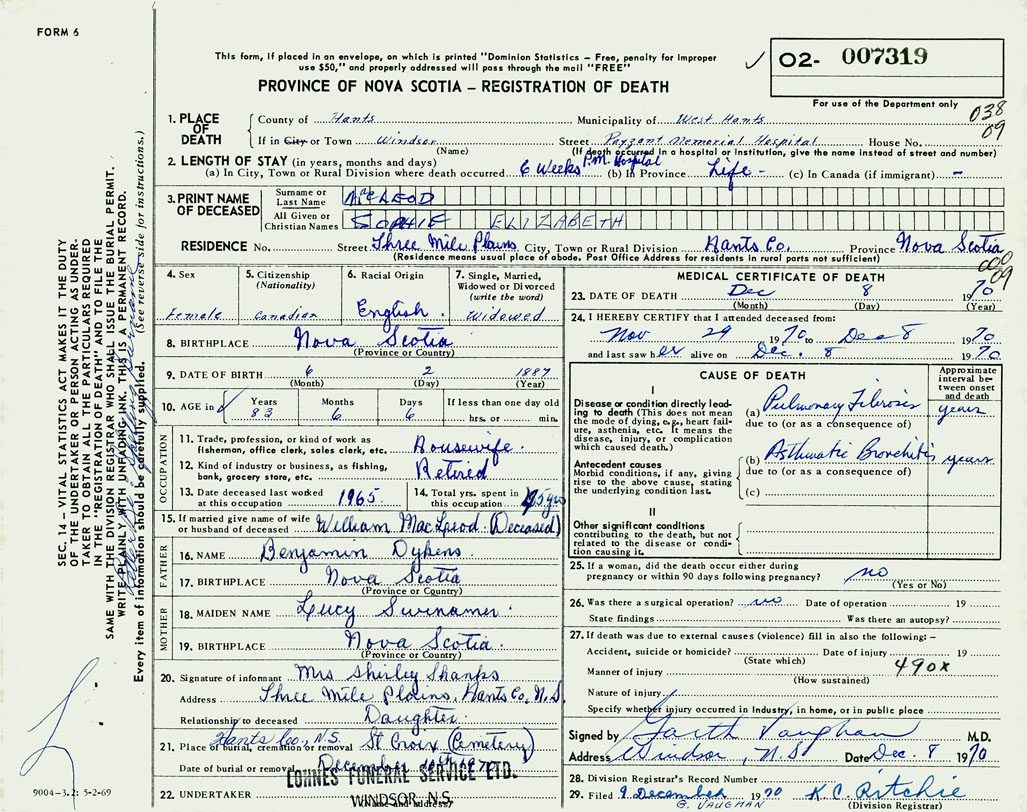 FORM 6
This form, if placed in an envelope, on which is printed "Dominion Statistics – Free, penalty for improper
use $50," and properly addressed will pass through the mail "FREE"
PROVINCE OF NOVA SCOTIA – REGISTRATION OF DEATH
02- 007319
For use of the Department only
038
09
1. PLACE OF DEATH
County of Hants Municipality of West Hants
If in City or Town Windsor Street Payzant Memorial Hospital House No.
(Name) (If death occurred in a hospital or institution, give the name instead of street and number)
2. LENGTH OF STAY (in years, months and days)
(a) In City, Town or Rural Division where death occurred 6 Weeks P.M. Hospital (b) In Province Life - (c) In Canada (if immigrant) -
3. PRINT NAME OF DECEASED
Surname or Last Name MacLEOD
All Given or Christian Names SOPHIE ELIZABETH
RESIDENCE No. Street Three Mile Plains City, Town or Rural Division Hants Co. Province Nova Scotia
(Residence means usual place of abode. Post Office Address for residents in rural parts not sufficient)
000
09
4. Sex Female
5. Citizenship (Nationality) Canadian
6. Racial Origin English
7. Single, Married, Widowed or Divorced (write the word) Widowed
8. BIRTHPLACE Nova Scotia
(Province or Country)
9. DATE OF BIRTH 6 2 1887
(Month) (Day) (Year)
10. AGE in Years 83 Months 6 Days 6 If less than one day old hrs. or min.
OCCUPATION
11. Trade, profession, or kind of work as fisherman, office clerk, sales clerk, etc. Housewife.
12. Kind of industry or business, as fishing, bank, grocery store, etc. Retired
13. Date deceased last worked at this occupation 1965.
14. Total yrs. spent in this occupation yrs
15. If married give name of wife or husband of deceased William MacLeod (Deceased)
FATHER
16. NAME Benjamin Dykens
17. BIRTHPLACE Nova Scotia
(Province or Country)
MOTHER
18. MAIDEN NAME Lucy Swinamer.
19. BIRTHPLACE Nova Scotia
(Province or Country)
20. Signature of informant Mrs Shirley Shanks
Address Three Mile Plains, Hants Co, N.S
Relationship to deceased Daughter.
Hants Co., N.S.
21. Place of burial, cremation or removal St Croix (Cemetery)
Date of burial or removal December 10th 1970
LOHNES FUNERAL SERVICE LTD.
22. UNDERTAKER WINDSOR, N.S.
(Name and address)
MEDICAL CERTIFICATE OF DEATH
23. DATE OF DEATH Dec 8 1970
(Month) (Day) (Year)
24. I HEREBY CERTIFY that I attended deceased from:
Nov 29 1970 to Dec 8 1970
and last saw her alive on Dec. 8 1970
CAUSE OF DEATH
Approximate interval between onset and death
I
Disease or condition directly leading to death (This does not mean the mode of dying, e.g., heart failure, asthenia, etc. It means the disease, injury, or complication which caused death.)
(a) Pulmonary Fibrosis years
due to (or as a consequence of)
Antecedent causes
Morbid conditions, if any, giving rise to the above cause, stating the underlying condition last.
(b) Asthmatic Bronchitis years
due to (or as a consequence of)
(c)
II
Other significant conditions contributing to the death, but not related to the disease or condition causing it.
25. If a woman, did the death occur either during pregnancy or within 90 days following pregnancy? no
(Yes or No)
26. Was there a surgical operation? no Date of operation 19
State findings Was there an autopsy?
27. If death was due to external causes (violence) fill in also the following: –
Accident, suicide or homicide? Date of injury 19
(State which)
Manner of injury 490X
(How sustained)
Nature of injury
Specify whether injury occurred in Industry, in home, or in public place
Signed by Garth Vaughan M.D.
Address Windsor, N.S Date Dec. 8 1970
28. Division Registrar's Record Number
29. Filed 9 December 1970 K C Ritchie
G. VAUGHAN (Division Registrar)
SEC. 14 – VITAL STATISTICS ACT MAKES IT THE DUTY
OF THE UNDERTAKER OR PERSON ACTING AS UNDER-
TAKER TO OBTAIN ALL THE PARTICULARS REQUIRED
IN THE "REGISTRATION OF DEATH" AND TO FILE THE
SAME WITH THE DIVISION REGISTRAR WHO SHALL ISSUE THE BURIAL PERMIT.
WRITE PLAINLY WITH UNFADING INK. THIS IS A PERMANENT RECORD.
Every item of information should be carefully supplied. (See reverse side for instructions.)
9004-3.2: 5-2-69